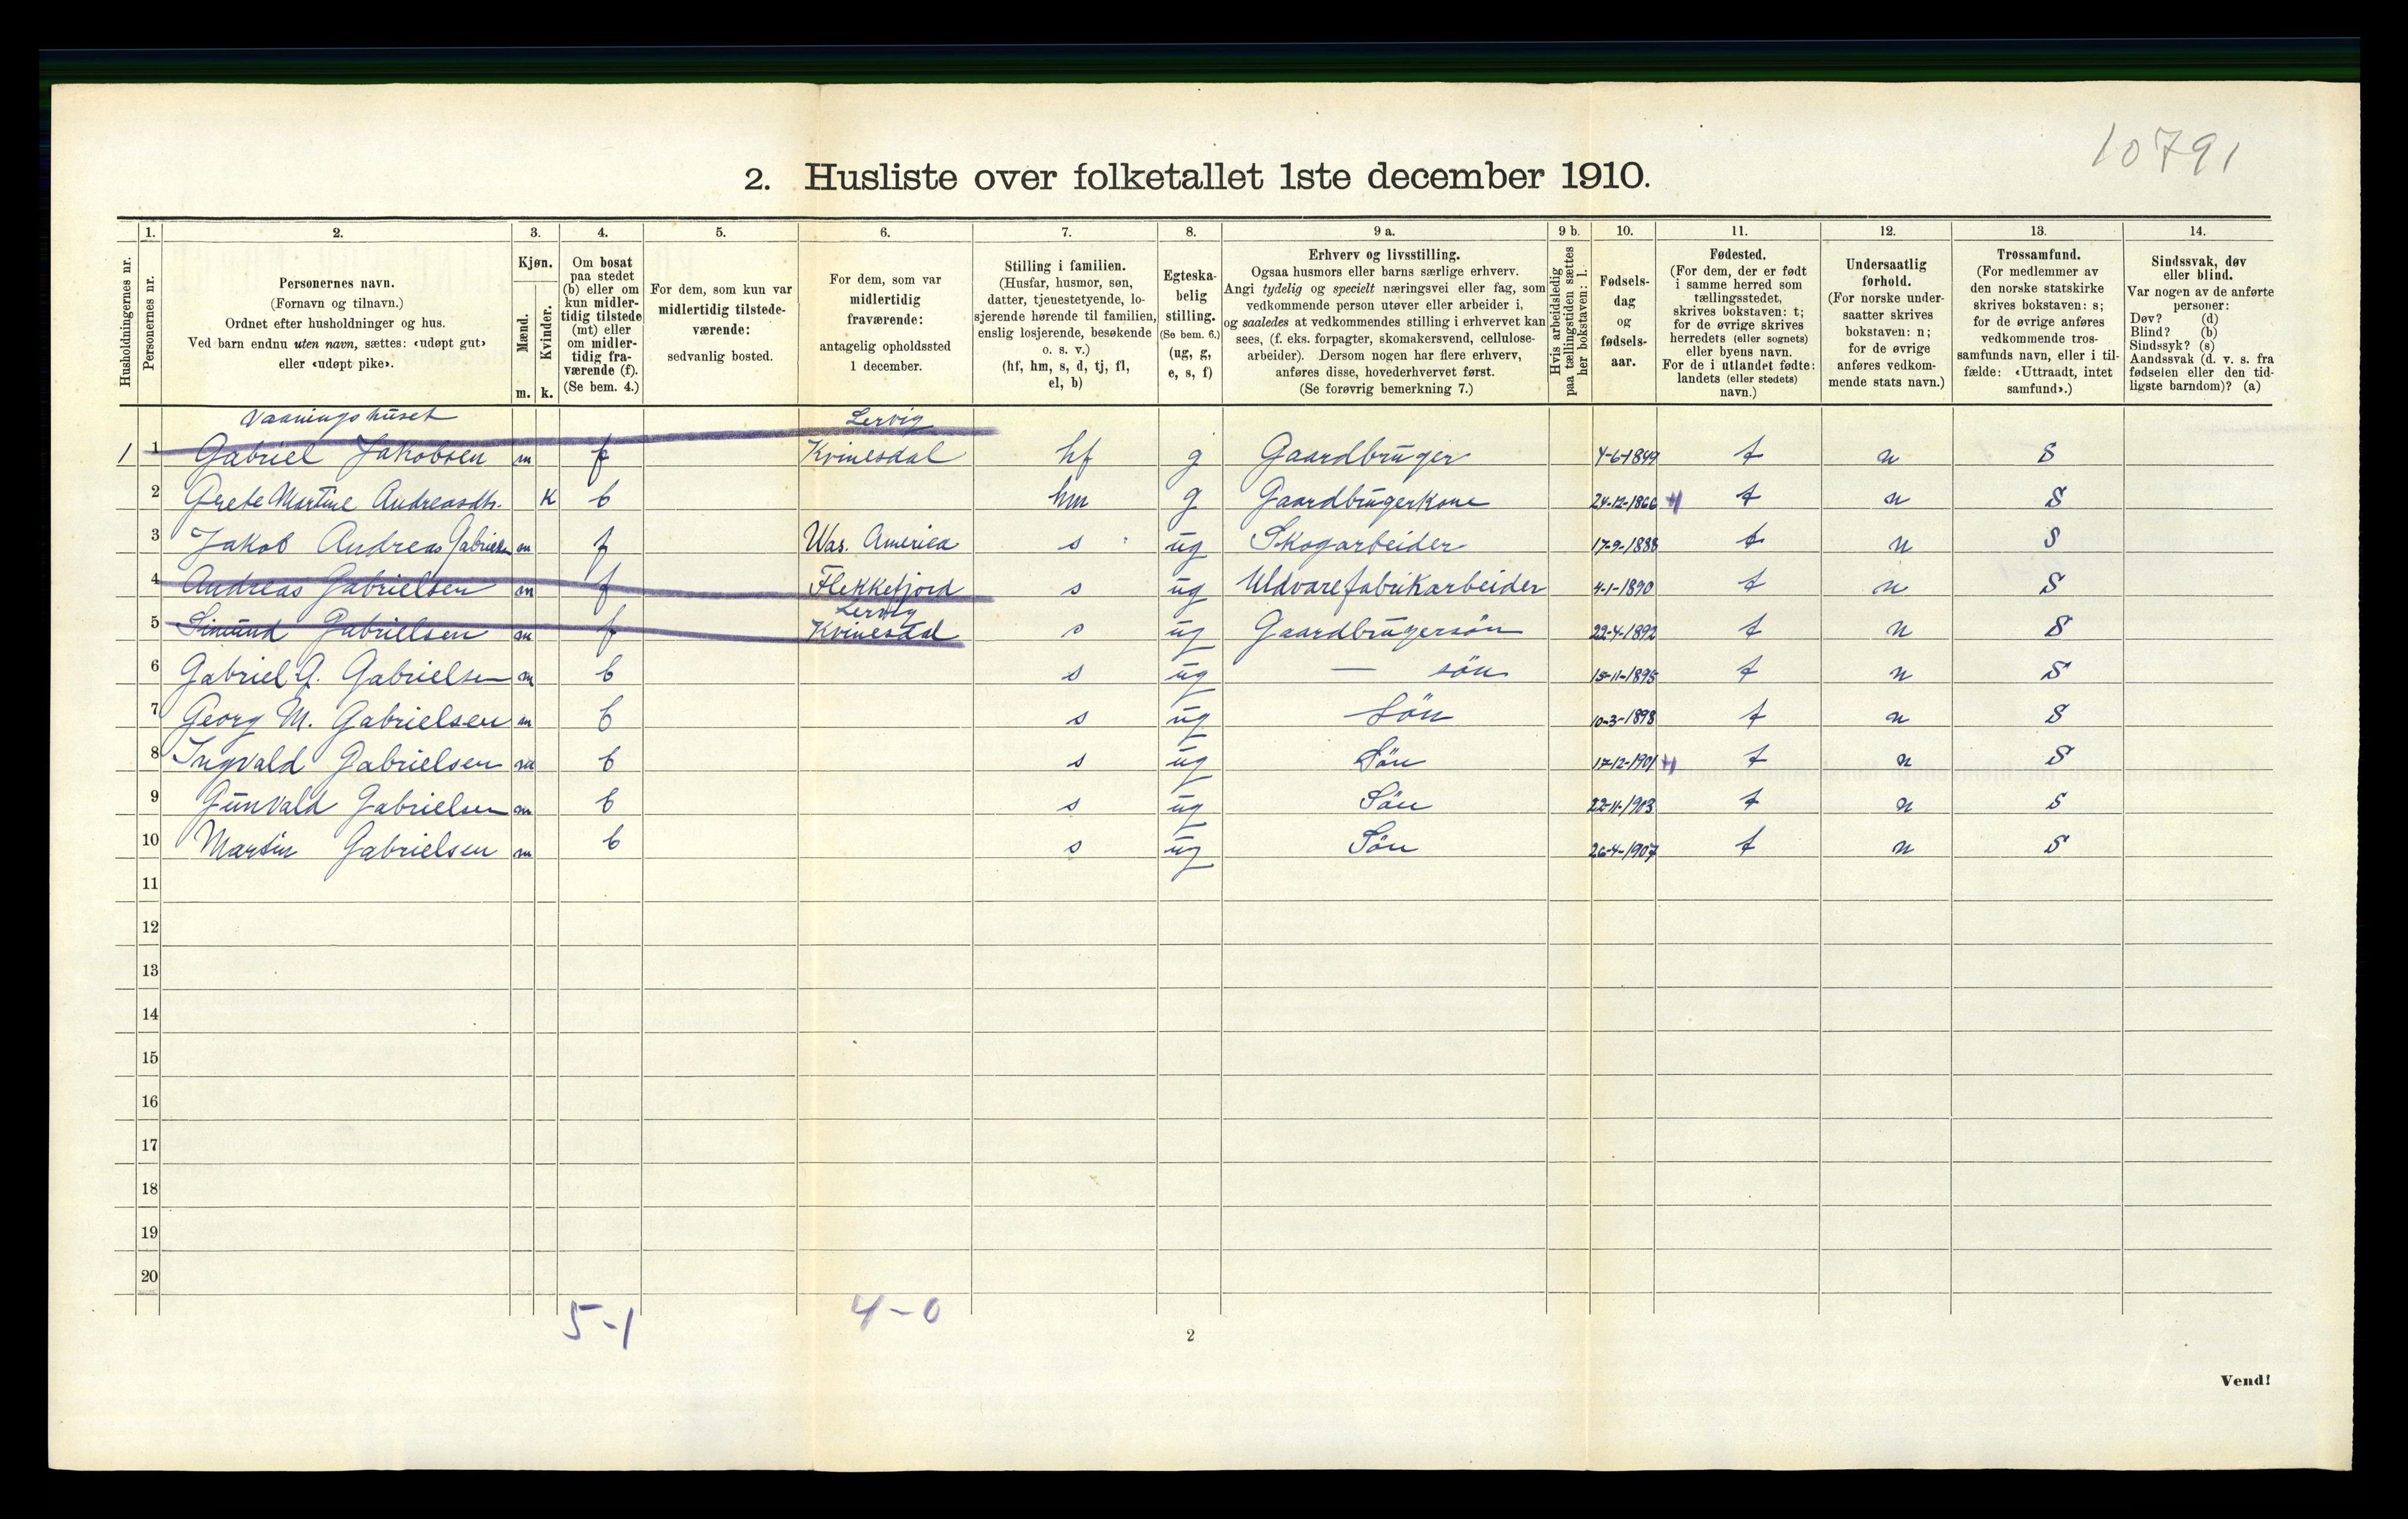 10791
2. Husliste over folketallet 1ste december 1910.
Husholdningernes nr.
1.
Personernes nr.
2.
Personernes navn.
(Fornavn og tilnavn.)
Ordnet efter husholdninger og hus.
Ved barn endnu uten navn, sættes: «udøpt gut»
eller «udøpt pike».
3.
Kjøn.
Mænd.
Kvinder.
m. k.
4.
Om bosat
paa stedet
(b) eller om
kun midler-
tidig tilstede
(mt) eller
om midler-
tidig fra-
værende (f).
(Se bem. 4.)
5.
For dem, som kun var
midlertidig tilstede-
værende:
sedvanlig bosted.
6.
For dem, som var
midlertidig
fraværende:
antagelig opholdssted
1 december.
7.
Stilling i familien.
(Husfar, husmor, søn,
datter, tjenestetyende, lo-
sjerende hørende til familien,
enslig losjerende, besøkende
o. s. v.)
(hf, hm, s, d, tj, fl,
el, b)
8.
Egteska-
belig
stilling.
(Se bem. 6.)
(ug, g,
e, s, f)
9 a.
Erhverv og livsstilling.
Ogsaa husmors eller barns særlige erhverv.
Angi tydelig og specielt næringsvei eller fag, som
vedkommende person utøver eller arbeider i,
og saaledes at vedkommendes stilling i erhvervet kan
sees, (f. eks. forpagter, skomakersvend, cellulose-
arbeider). Dersom nogen har flere erhverv,
anføres disse, hovederhvervet først.
(Se forøvrig bemerkning 7.)
9 b.
Hvis arbeidsledig
paa tællingstiden sættes
her bokstaven: l.
10.
Fødsels-
dag
og
fødsels-
aar.
11.
Fødested.
(For dem, der er født
i samme herred som
tællingsstedet,
skrives bokstaven: t;
for de øvrige skrives
herredets (eller sognets)
eller byens navn.
For de i utlandet fødte:
landets (eller stedets)
navn.)
12.
Undersaatlig
forhold.
(For norske under-
saatter skrives
bokstaven: n;
for de øvrige
anføres vedkom-
mende stats navn.)
13.
Trossamfund.
(For medlemmer av
den norske statskirke
skrives bokstaven: s;
for de øvrige anføres
vedkommende tros-
samfunds navn, eller i til-
fælde: «Uttraadt, intet
samfund».)
14.
Sindssvak, døv
eller blind.
Var nogen av de anførte
personer:
Døv? (d)
Blind? (b)
Sindssyk? (s)
Aandssvak (d. v. s. fra
fødselen eller den tid-
ligste barndom)? (a)
Vaaningshuset Lervig
1 1 Gabriel Jakobsen m f Kvinesdal hf g Gaardbruger 4-6-1849 t n S
2 Grete Martine Andreasdtr. K b hm g Gaardbrugerkone 24-12-1866 t n S
3 Jakob Andreas Gabrielsen m f Was. America s ug Skogarbeider 17-9-1888 t n S
4 Andreas Gabrielsen m f Flekkefjord s ug Uldvarefabrikarbeider 4-1-1890 t n S
Lervig
5 Simund Gabrielsen m f Kvinesdal s ug Gaardbrugersøn 22-4-1892 t n S
6 Gabriel G. Gabrielsen m b s ug — søn 15-11-1895 t n S
7 Georg M. Gabrielsen m b s ug Søn 10-3-1898 t n S
8 Ingvald Gabrielsen m b s ug Søn 17-12-1901 t n S
9 Gunvald Gabrielsen m b s ug Søn 22-11-1903 t n S
10 Martin Gabrielsen m b s ug Søn 26-4-1907 t n S
11
12
13
14
15
16
17
18
19
20
5-1 4-0
2
Vend!